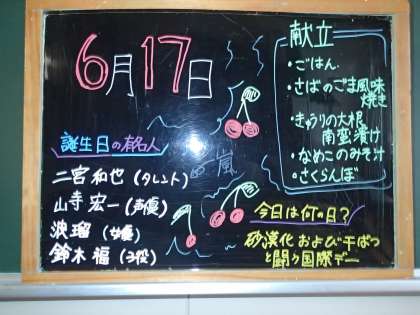 6月17日
誕生日の有名人
二宮和也（タレント）
嵐
山寺宏一（声優）
波瑠（女優）
鈴木福（子役）
献立
・ごはん
・さばのごま風味
焼き
・きゅうりの大根
南蛮漬け
・なめこのみそ汁
・さくらんぼ
今日は何の日？
砂漠化および干ばつ
と闘う国際デー